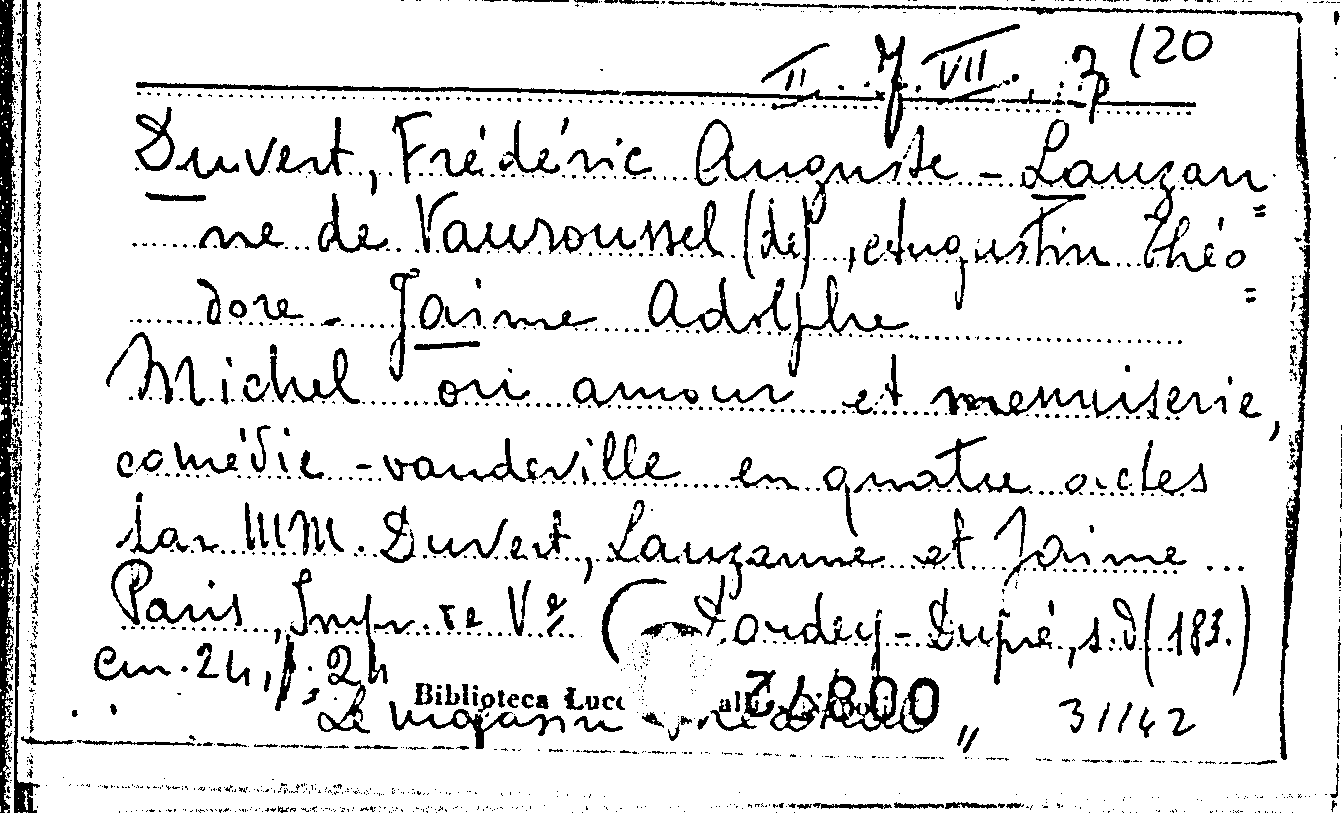 II. J. VII. 7p /20
Duvert, Frédéric Auguste - Lauzan=
ne de Vauroussel (de), Augustin Théo=
dore - Jaime Adolphe
Michel ou amour et menuiserie,
comédie-vaudeville en quatre actes
par MM. Duvert, Lauzanne et Jaime ...
Paris, Impr. de Vᵉ ( Dondey-Dupré, s.d (183.)
cm. 24, p. 24
Biblioteca Lucc 31800
Le magasin 31142